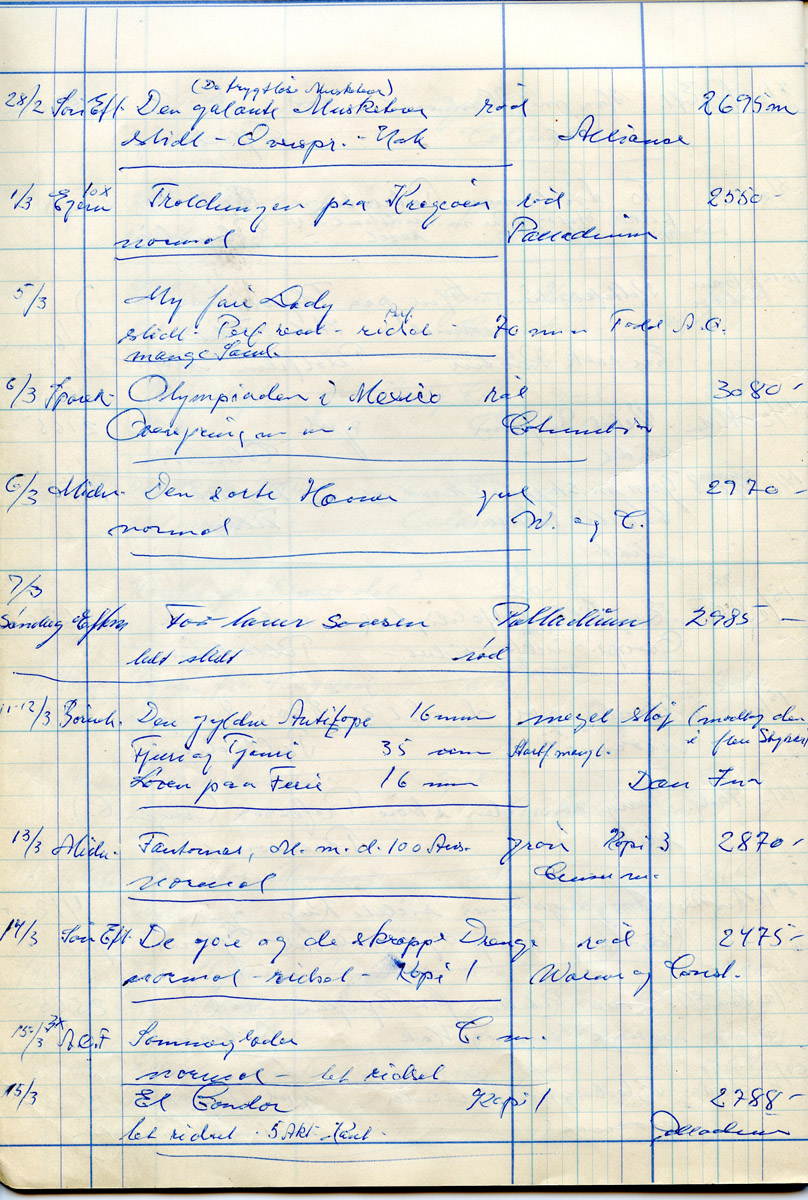 (De frygtløse Musketerer)
28/2 Søn Eft. Den galante Musketeer rød 2695 m
slidt - Overspr. - Hak Alliance
1/3 Ejgm 10x Troldungen paa Kragerøen rød 2550 -
normal Palladium
5/3 My fair Lady
slidt - Perf. rend - ridset - 70 mm Todd A.O.
mange Saml.
6/3 Sports- Olympiaden i Mexico rød 3080 -
Overspring m m. Columbia
6/3 Midn. Den sorte gul 2970 -
normal W. og C.
7/3
Søndag Eftm Palladium 2985 -
lidt slidt rød
11-12/3 Børneb. Den gyldne Antilope 16 mm meget støj (modtog den
Fjuri og Tjuri 35 mm i flere Stykker
Løven paa Ferie 16 mm Dan Ina
13/3 Midn. Fantomas, M. m. d. 100 Ans. grøn Kopi 3 2870 -
normal Constantin
14/3 Søn Eft. De gæve og de skrappe Drenge rød 2475 -
normal - ridset - Kopi 1 Warner og Const.
15/3 3x A.O.F Sommerglæder C. m.
normal - let ridset
15/3 El Condor Kopi 1 2788 -
let ridset - 5 Akt. Kant - Palladium